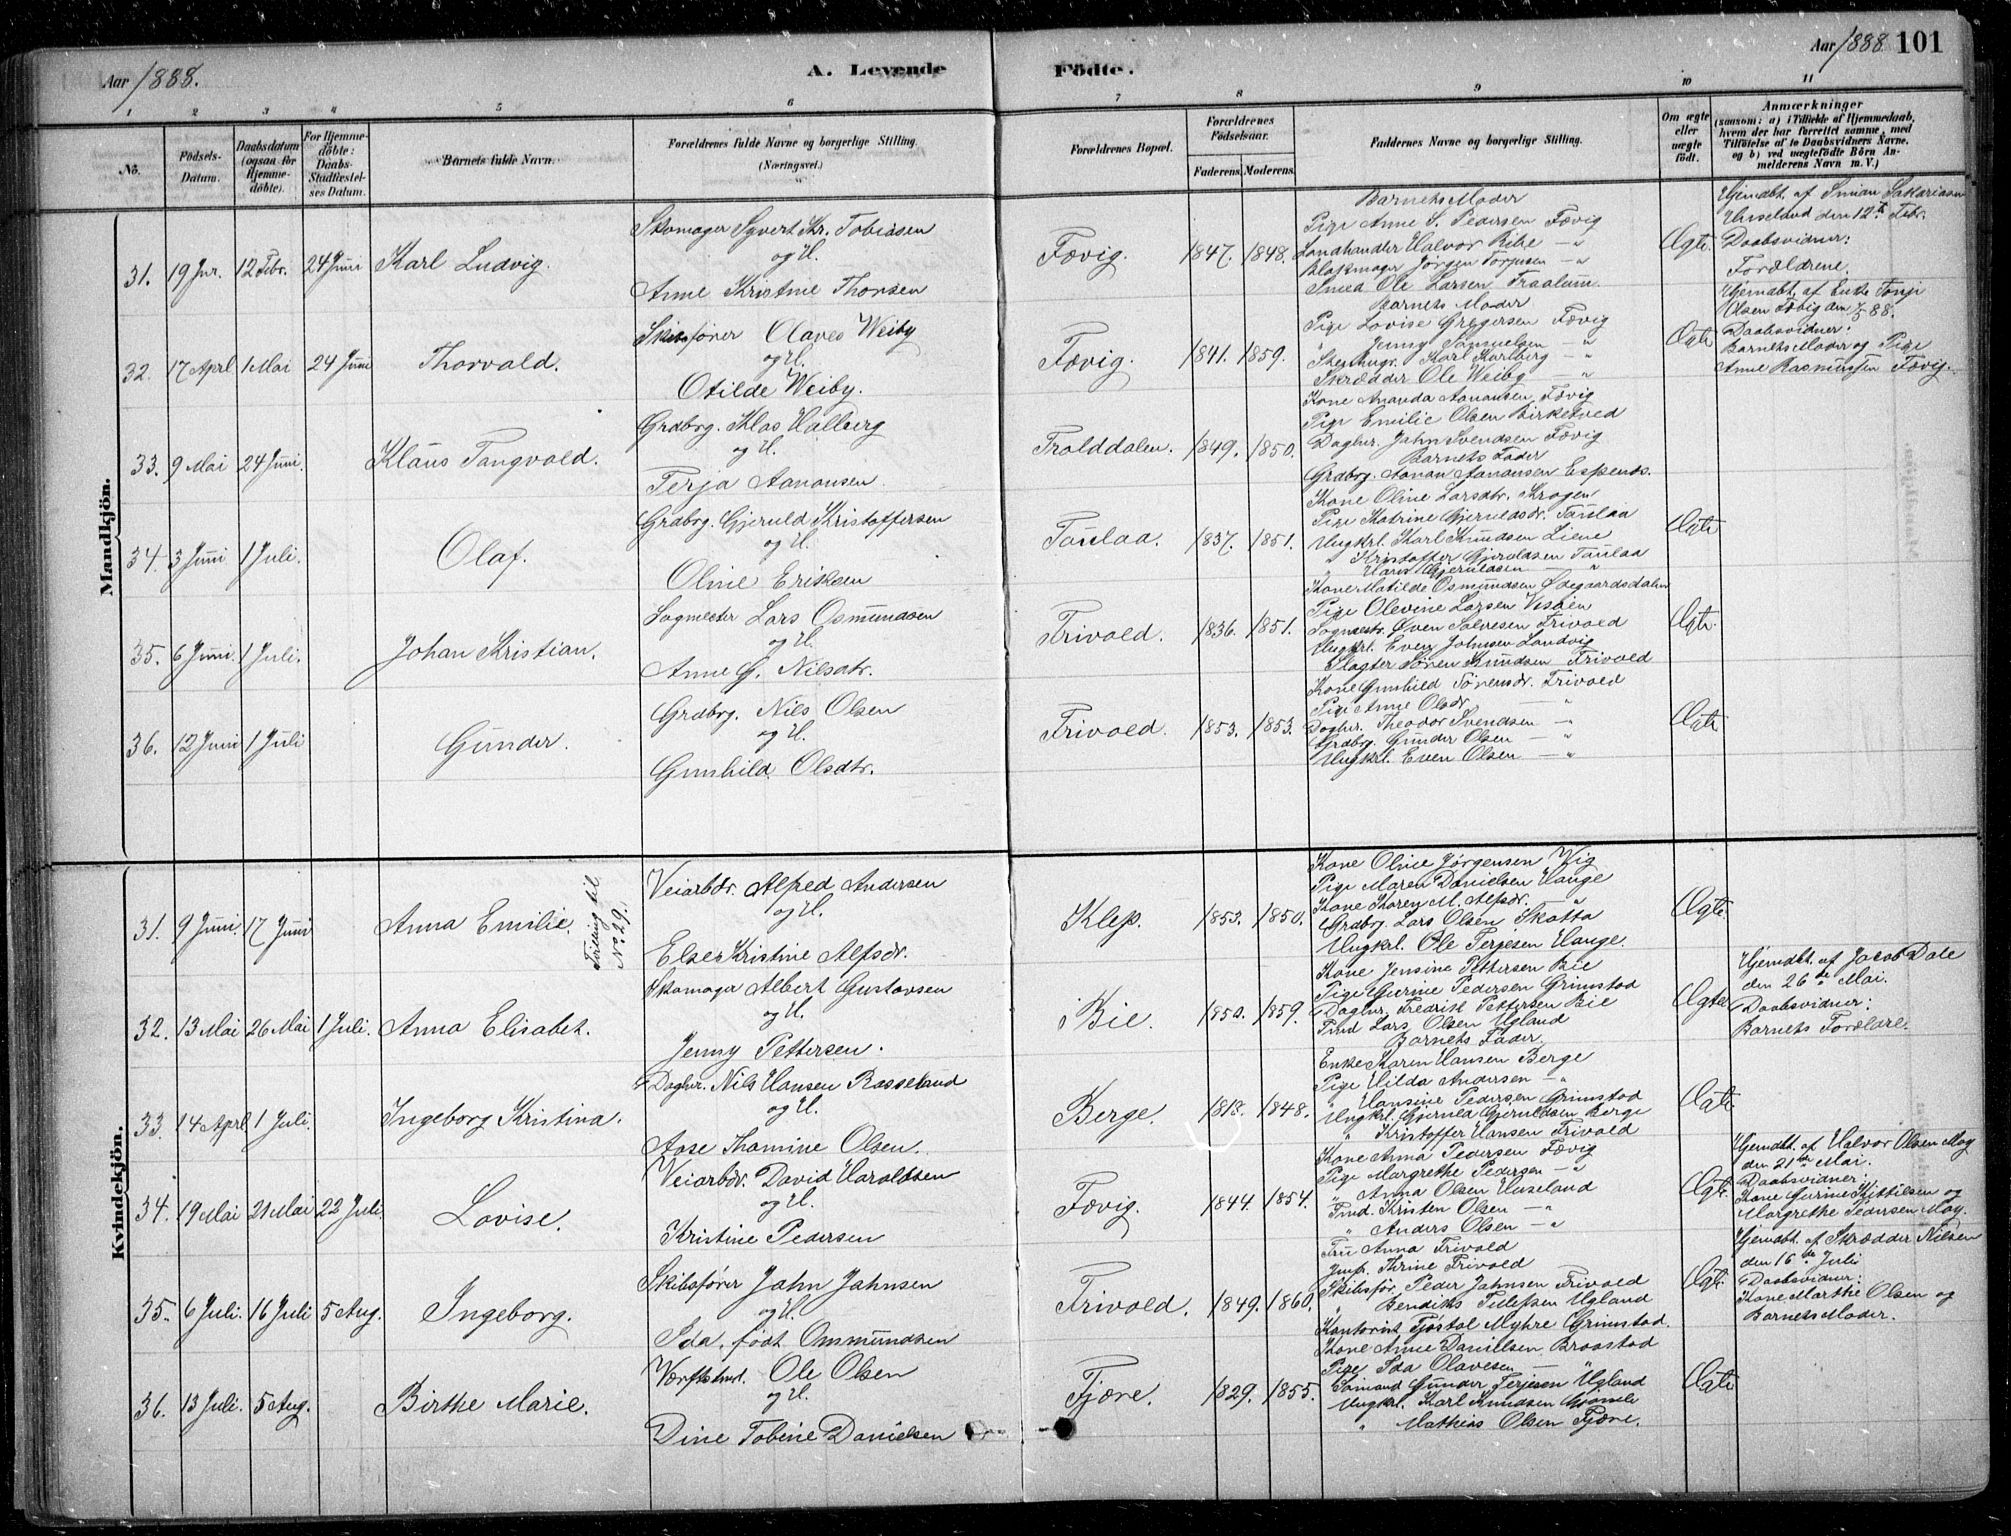 Aar 1888.
A. Levende Födte.
Aar 1888. 101
1 2 3 4 5 6 7 8 9 10 11
No.
Födsels-Datum.
Daabsdatum (ogsaa for Hjemmedöbte).
For Hjemmedöbte: Daabs-Stadfæstelses Datum.
Barnets fulde Navn.
Forældrenes fulde Navne og borgerlige Stilling. (Næringsvei.)
Forældrenes Bopæl.
Forældrenes Födselsaar.
Faderens. Moderens.
Faddernes Navne og borgerlige Stilling.
Om ægte eller uægte födt.
Anmærkninger
(saasom: a) i Tilfælde af Hjemmedaab, hvem der har forrettet samme, med Tilföielse af to Daabsvidners Navne, og b) ved uægtefödte Börn Anmelderens Navn m. V.)
Mandkjön.
31. 19 Jnr. 12 Febr. 24 Juni Karl Ludvig.
Skomager Syvert Kr. Tobiasen
og H.
Anne Kristine Thorsen
Fævig. 1847. 1848.
Barnets Moder
Pige Anne S. Pedersen Fævig
Landhandler Halvor Ribe — "
Blokmager Jørgen Torjusen — "
Smed Ole Larsen
Ægte.
Hjemdbt. af Sakariasen
den 12te Febr.
Daabsvidner:
Forældrene.
32. 17 Aprl 1 Mai 24 Juni Thorvald.
Skibsfører Olaves Weiby
og H.
Otilde Weiby.
Fævig. 1841. 1859.
Barnets Moder
Pige Lovise Gregersen Fævig
" Jenny Samuelsen — "
Karl Karlberg — "
Skrædder Ole Weiby — "
Ægte
Hjemdbt. af Enke Tonje
Olsen Fævig den 1/5 88.
Daabsvidner:
Barnets Moder og Pige
Anne Rasmussen Fævig.
33. 9 Mai 24 Juni. Klaus Tangvald.
Grdbrg. Klas Halberg
og H.
Terja Aanonsen.
Trolddalen. 1849. 1850.
Kone Amanda Aanonsen Fævig
Pige Emilie Olsen Birketved
Daglnr. Jahn Svendsen Fævig
Barnets Fader
Grdbrg. Aanon Aanonsen Espenes.
34. 3 Juni 1 Juli. Olaf.
Grdbrg. Gjeruld Kristoffersen
og H.
Oline Eriksen
Taulaa. 1837. 1851.
Kone Oline Larsdtr. Krogen
Pige Katrine Gjeruldsdr. Taulaa
Ungkrl. Karl Knudsen Liene
" Kristoffer Gjeruldsen Taulaa
" Hans Gjeruldsen — "
Ægte
35. 6 Juni. 1 Juli. Johan Kristian.
Sagmester Lars Osmundsen
og H.
Anne G. Nilsdtr.
Frivold. 1836. 1851.
Kone Matilde Osmundsen Ødegaardsdalen
Pige Olevine Larsen Vessøen
Sagmestr. Øven Salvesen Frivold
Ungkrl. Even Johnsen Landvig
Slagter Søren Knudsen Frivold
Ægte.
36. 12 Juni 1 Juli Gunder.
Grdbrg. Nils Olsen
og H.
Gunhild Olsdtr.
Frivold. 1853. 1853.
Kone Gunhild Tønnesdr. Frivold
Pige Anne Olsdr. — "
Daglnr. Theodor Svendsen — "
Grdbrg. Gunder Olsen — "
Ungkrl. Even Olsen — "
Ægte
Kvindekjön.
31. 9 Juni. 17 Juni Anna Emilie.
Tvilling til No. 29.
Veiarbdr. Alfred Andersen
og H.
Else Kristine Alfsdr.
Klep. 1853. 1850.
Kone Oline Jørgensen Vig
Pige Maren Danielsen Hauge
Kone Karen M. Alfsdr. "
Grdbrg. Lars Olsen Skotta
Ungkrl. Ole Terjesen Hauge.
Ægte.
32. 13 Mai 26 Mai 1 Juli. Anna Elisabet.
Skomager Albert Gustavsen
og H.
Jenny Pettersen.
Bie. 1850. 1859.
Kone Jensine Pettersen Bie
Pige Gurine Pedersen Grimstad
Daglnr. Fredrik Pettersen Bie
Tmd Lars Olsen Ugland
Barnets Fader.
Ægte
Hjemdbt. af Jacob Dale
den 26de Mai.
Daabsvidner:
Barnets Forældre.
33. 14 Aprl 1 Juli. Ingeborg Kristina.
Daglnr. Nils Hansen Rosseland
og H.
Aase Thomine Olsen.
Berge. 1848.
Enke Karen Hansen Berge
Pige Hilda Andersen — "
" Hansine Pedersen Grimstad
Ungkrl. Gjeruld Gjeruldsen Berge
" Kristoffer Hansen Frivold
Ægte
34. 19 Mai 21 Mai 22 Juli. Lovise.
Veiarbdr. David Haraldsen
og H.
Kristine Pedersen
Fævig. 1844. 1854.
Kone Anna Pedersen Fævig
Pige Margrethe Pedersen — "
" Anna Olsen Haseland
Tmd. Kristen Olsen — "
" Anders Olsen — "
Ægte
Hjemdbt. af Halvor Olsen Moy
den 21de Mai.
Daabsvidner:
Kone Gurine Kittilsen og
Margrethe Pedersen Moy.
35. 6 Juli. 16 Juli 5 Aug. Ingeborg.
Skibsfører Jahn Jahnsen
og H.
Ida, født Ommundsen
Frivold. 1849. 1860.
Fru Anna Frivold
Jmfr. Thrine Frivold
Skibsfør. Peder Jahnsen Frivold
" Bendiks Tellefsen Ugland
Kontorist Tjøstol Myhre Grimstad.
Ægte
Hjemdbt. af Skrædder Nilsen
den 16de Juli
Daabsvidner:
Kone Marthe Olsen og
Barnets Moder.
36. 13 Juli. 5 Aug. Birthe Marie.
Ole Olsen
og H.
Dine Tobine Danielsen
Fjære. 1829. 1855.
Kone Anne Danielsen Broastad
Pige Ida Olavesen — "
Sømand Gunder Terjesen Ugland
Ungkrl. Karl Knudsen
" Mathias Olsen Fjære.
Ægte